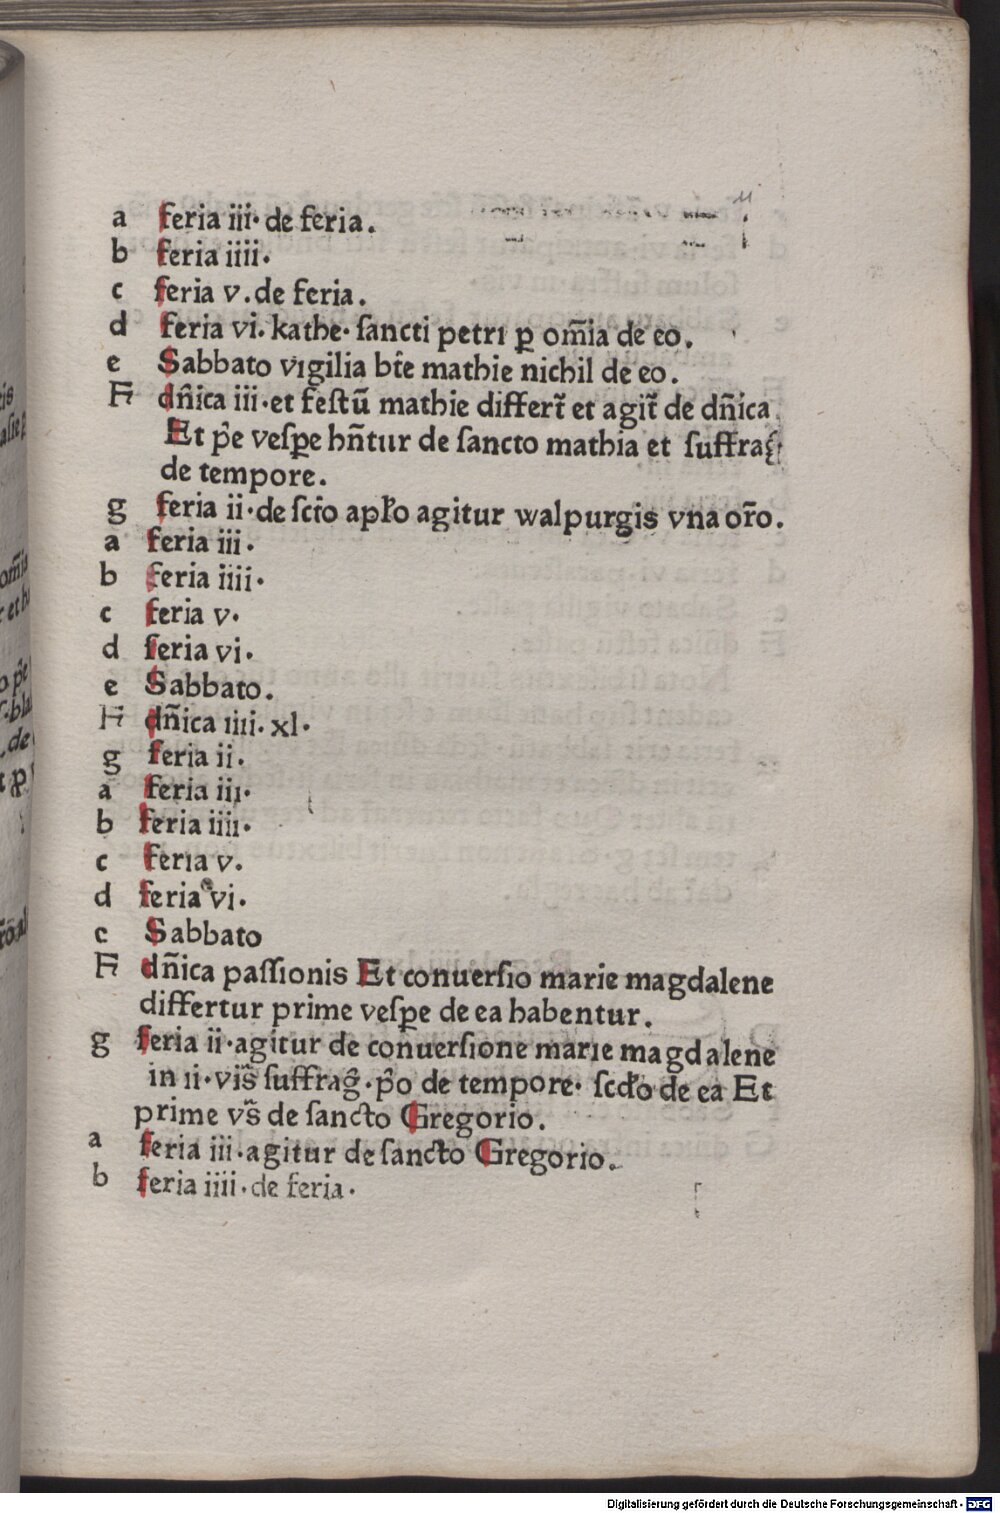 a feria iii· de feria.
b feria iiii·
c feria v. de feria.
d feria vi. kathe· ſancti petri ꝑ om̃ia de eo.
e Sabbato vigilia bt̃e mathie nichil de eo.
F dñica iii·et feſtũ mathie differt̃ et agit̃ de dñica
Et p̃e veſꝑe hñtur de ſancto mathia et ſuffrag̃
de tempore.
g feria ii·de ſct̃o apl̃o agitur walpurgis vna or̃o.
a feria iii·
b feria iiii·
c feria v·
d feria vi·
e Sabbato.
F dñica iiii· xl·
g feria ii·
a feria iii·
b feria iiii·
c feria v.
d feria vi·
e Sabbato
F dñica paſſionis Et conuerſio marie magdalene
differtur prime veſꝑe de ea habentur.
g feria ii·agitur de conuerſione marie magdalene
in ii·viſ̃ ſuffrag̃·p̃o de tempore· ſcd̃o de ea Et
prime vſ̃ de ſancto Gregorio.
a feria iii·agitur de ſancto Gregorio.
b feria iiii·de feria·
Digitalisierung gefördert durch die Deutsche Forschungsgemeinschaft - DFG